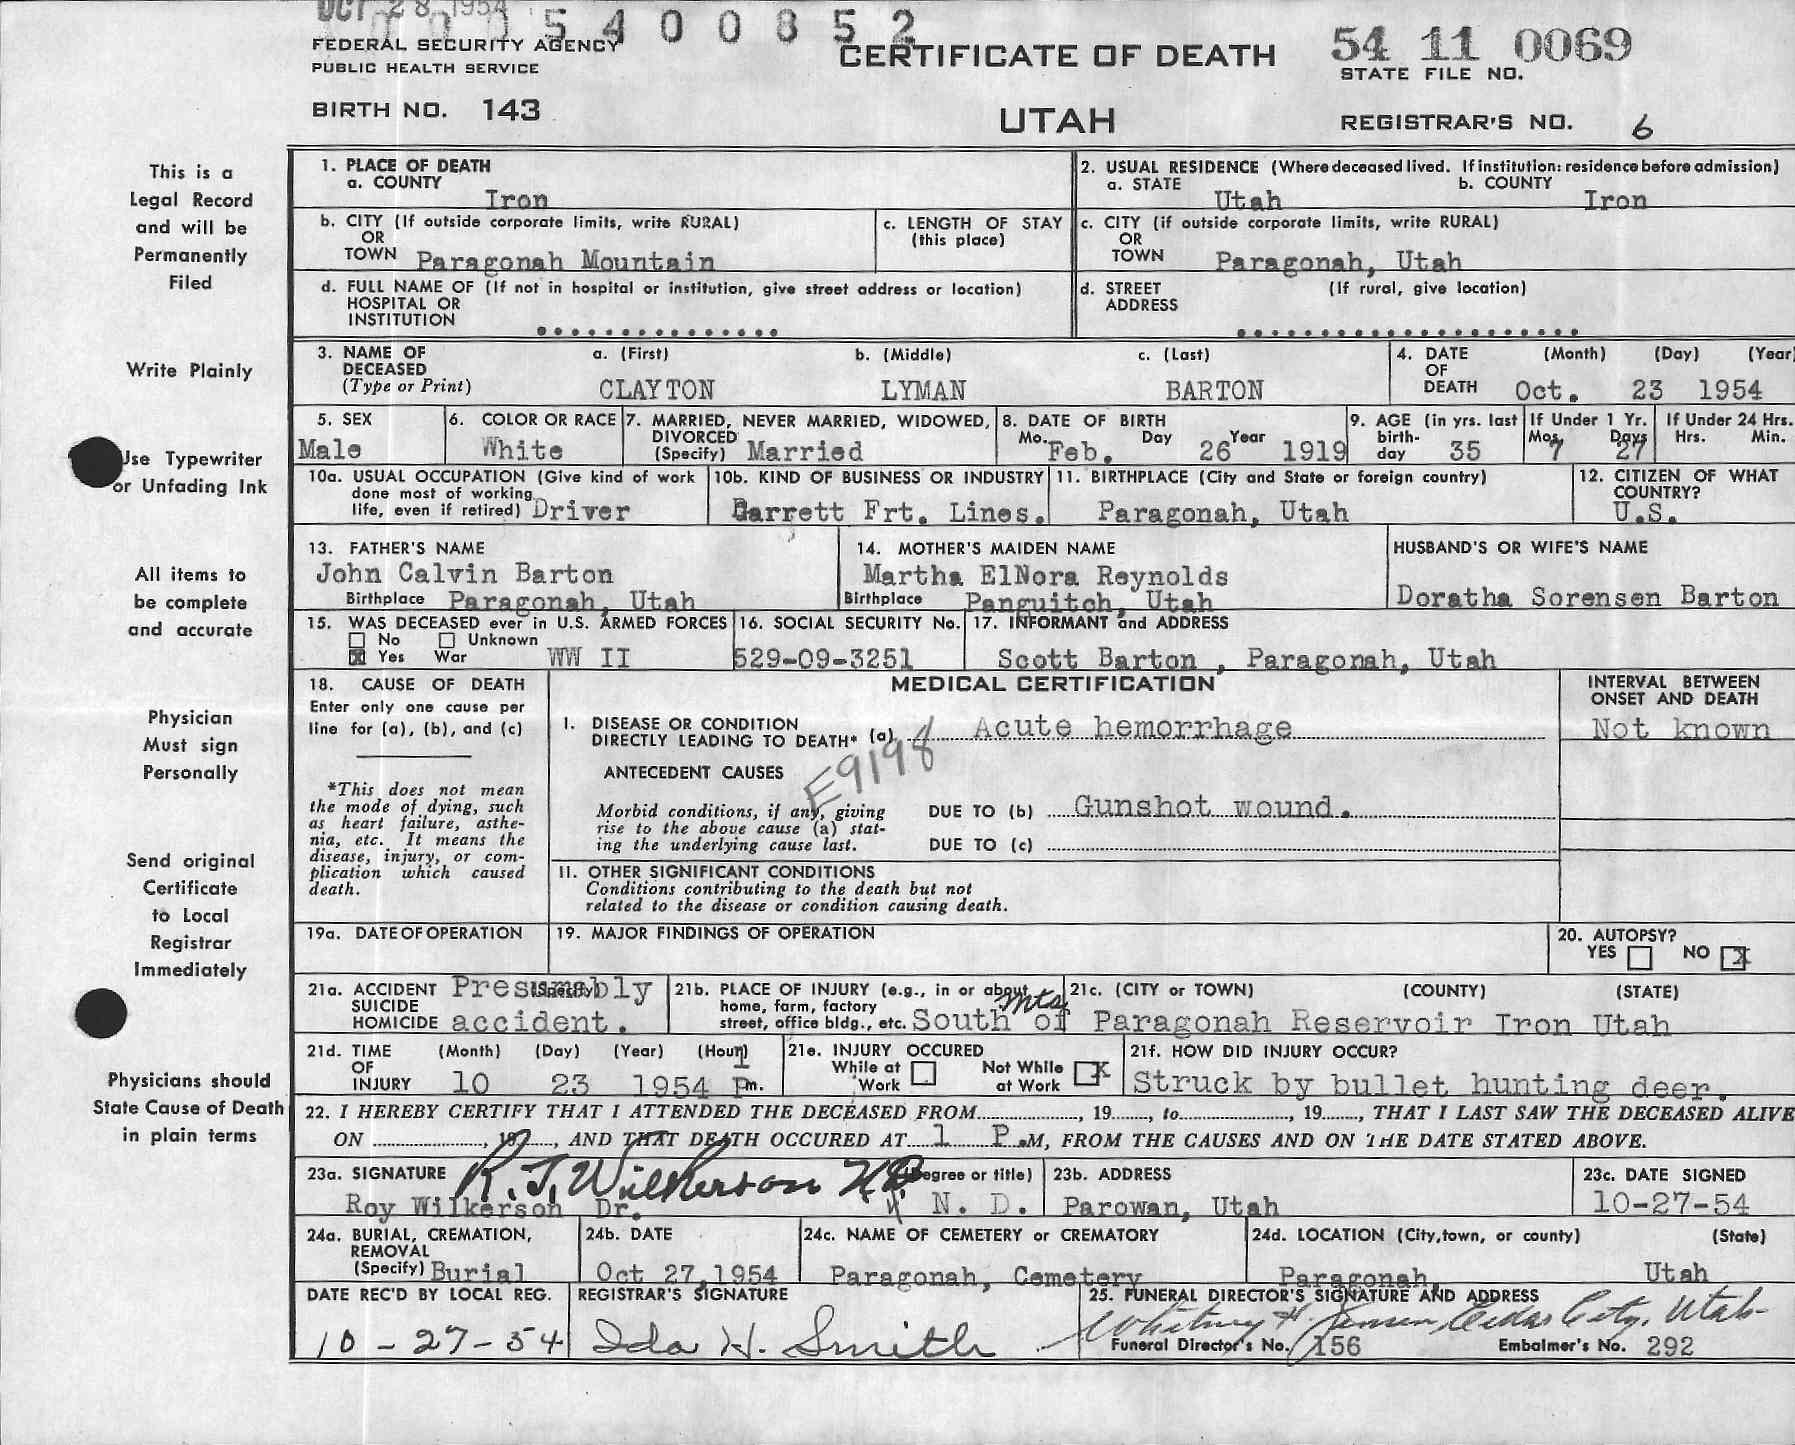 OCT 28 1954
5 4 0 0 8 5 2
FEDERAL SECURITY AGENCY
PUBLIC HEALTH SERVICE
CERTIFICATE OF DEATH
54 11 0069
STATE FILE NO.
BIRTH NO. 143
UTAH
REGISTRAR'S NO. 6
This is a
Legal Record
and will be
Permanently
Filed
Write Plainly
Use Typewriter
or Unfading Ink
All items to
be complete
and accurate
Physician
Must sign
Personally
Send original
Certificate
to Local
Registrar
Immediately
Physicians should
State Cause of Death
in plain terms
1. PLACE OF DEATH
a. COUNTY Iron
2. USUAL RESIDENCE (Where deceased lived. If institution: residence before admission)
a. STATE Utah b. COUNTY Iron
b. CITY (If outside corporate limits, write RURAL)
OR
TOWN Paragonah Mountain
c. LENGTH OF STAY
(this place)
c. CITY (if outside corporate limits, write RURAL)
OR
TOWN Paragonah, Utah
d. FULL NAME OF (If not in hospital or institution, give street address or location)
HOSPITAL OR
INSTITUTION
d. STREET (If rural, give location)
ADDRESS
3. NAME OF
DECEASED
(Type or Print)
a. (First) b. (Middle) c. (Last)
CLAYTON LYMAN BARTON
4. DATE (Month) (Day) (Year)
OF
DEATH Oct. 23 1954
5. SEX
Male
6. COLOR OR RACE
White
7. MARRIED, NEVER MARRIED, WIDOWED,
DIVORCED
(Specify) Married
8. DATE OF BIRTH
Mo. Day Year
Feb. 26 1919
9. AGE (in yrs. last
birth-
day 35
If Under 1 Yr.
Mos. Days
7 27
If Under 24 Hrs.
Hrs. Min.
10a. USUAL OCCUPATION (Give kind of work
done most of working
life, even if retired) Driver
10b. KIND OF BUSINESS OR INDUSTRY
Garrett Frt. Lines.
11. BIRTHPLACE (City and State or foreign country)
Paragonah, Utah
12. CITIZEN OF WHAT
COUNTRY?
U.S.
13. FATHER'S NAME
John Calvin Barton
Birthplace Paragonah, Utah
14. MOTHER'S MAIDEN NAME
Martha ElNora Reynolds
Birthplace Panguitch, Utah
HUSBAND'S OR WIFE'S NAME
Doratha Sorensen Barton
15. WAS DECEASED ever in U.S. ARMED FORCES
No Unknown
Yes War WW II
16. SOCIAL SECURITY No.
529-09-3251
17. INFORMANT and ADDRESS
Scott Barton , Paragonah, Utah
18. CAUSE OF DEATH
Enter only one cause per
line for (a), (b), and (c)
*This does not mean
the mode of dying, such
as heart failure, asthe-
nia, etc. It means the
disease, injury, or com-
plication which caused
death.
MEDICAL CERTIFICATION
I. DISEASE OR CONDITION
DIRECTLY LEADING TO DEATH* (a) Acute hemorrhage
E9198
ANTECEDENT CAUSES
Morbid conditions, if any, giving
rise to the above cause (a) stat-
ing the underlying cause last.
DUE TO (b) Gunshot wound.
DUE TO (c)
II. OTHER SIGNIFICANT CONDITIONS
Conditions contributing to the death but not
related to the disease or condition causing death.
INTERVAL BETWEEN
ONSET AND DEATH
Not known
19a. DATE OF OPERATION
19. MAJOR FINDINGS OF OPERATION
20. AUTOPSY?
YES NO X
21a. ACCIDENT Presumably (Specify)
SUICIDE
HOMICIDE accident.
21b. PLACE OF INJURY (e.g., in or about
home, farm, factory
street, office bldg., etc.
21c. (CITY or TOWN) (COUNTY) (STATE)
mts
South of Paragonah Reservoir Iron Utah
21d. TIME (Month) (Day) (Year) (Hour)
OF 1
INJURY 10 23 1954 Pm.
21e. INJURY OCCURED
While at Work
Not While at Work X
21f. HOW DID INJURY OCCUR?
Struck by bullet hunting deer.
22. I HEREBY CERTIFY THAT I ATTENDED THE DECEASED FROM............, 19......, to............, 19......, THAT I LAST SAW THE DECEASED ALIVE
ON ............, 19......, AND THAT DEATH OCCURED AT 1 P.M, FROM THE CAUSES AND ON THE DATE STATED ABOVE.
23a. SIGNATURE R. J. Wilkerson M.D. (Degree or title)
Roy Wilkerson Dr. N. D.
23b. ADDRESS
Parowan, Utah
23c. DATE SIGNED
10-27-54
24a. BURIAL, CREMATION,
REMOVAL
(Specify) Burial
24b. DATE
Oct 27,1954
24c. NAME OF CEMETERY or CREMATORY
Paragonah, Cemetery
24d. LOCATION (City, town, or county) (State)
Paragonah, Utah
DATE REC'D BY LOCAL REG.
10-27-54
REGISTRAR'S SIGNATURE
Ida H. Smith
25. FUNERAL DIRECTOR'S SIGNATURE AND ADDRESS
Whitney H. Jensen, Cedar City, Utah
Funeral Director's No. 156 Embalmer's No. 292